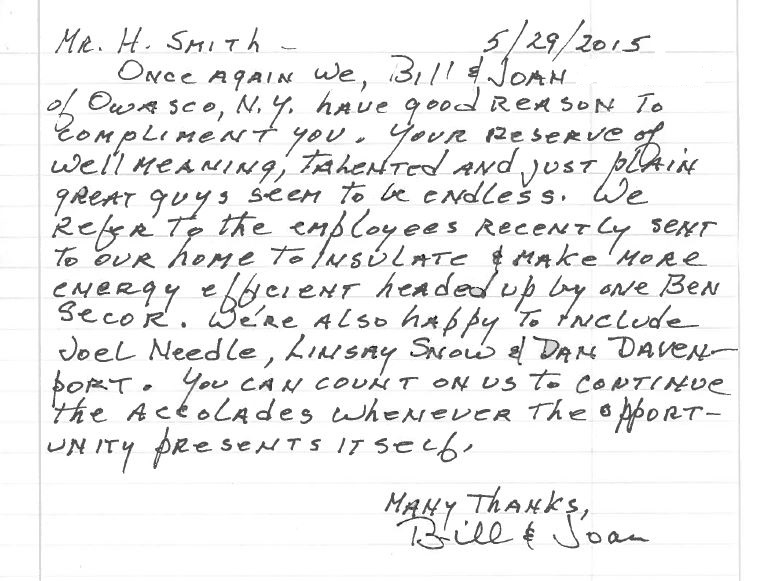 Mr. H. Smith – 5/29/2015
Once again we, Bill & Joan
of Owasco, N.Y. have good reason to
compliment you. Your reserve of
well meaning, talented and just plain
great guys seem to be endless. We
refer to the employees recently sent
to our home to insulate & make more
energy efficient headed up by one Ben
Secor. We're also happy to include
Joel Needle, Linsay Snow & Dan Daven-
port. You can count on us to continue
the accolades whenever the opport-
unity presents itself.
Many Thanks,
Bill & Joan